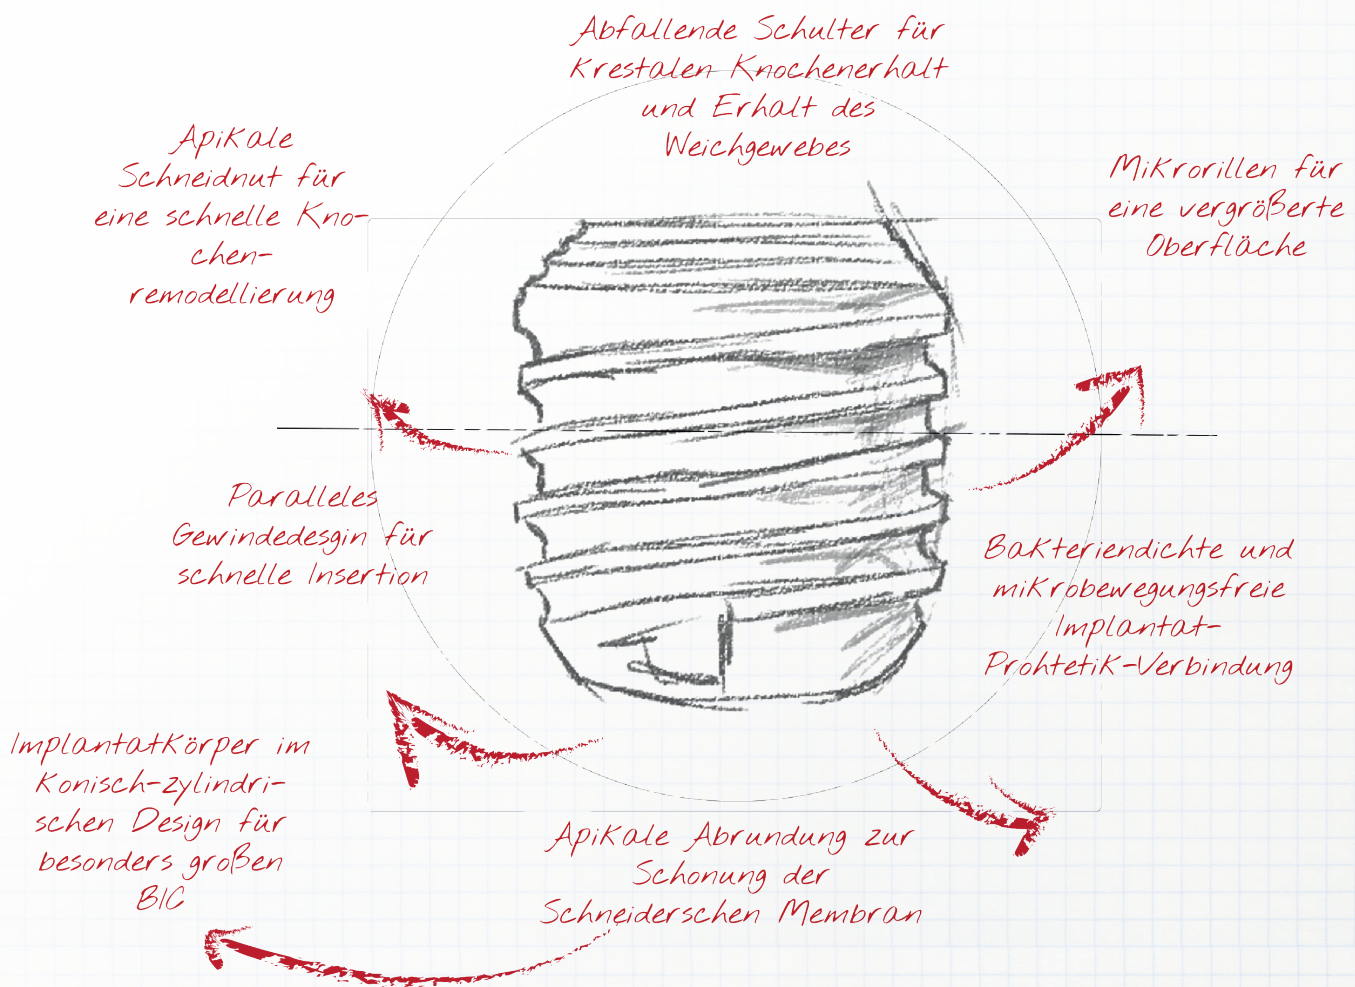 Abfallende Schulter für
Krestalen Knochenerhalt
und Erhalt des
Weichgewebes
Apikale
Schneidnut für
eine schnelle Kno-
chen-
remodellierung
Mikrorillen für
eine vergrößerte
Oberfläche
Paralleles
Gewindedesgin für
schnelle Insertion
Bakteriendichte und
mikrobewegungsfreie
Implantat-
Prohtetik-Verbindung
Implantatkörper im
Konisch-zylindri-
schen Design für
besonders großen
BIC
Apikale Abrundung zur
Schonung der
Schneiderschen Membran